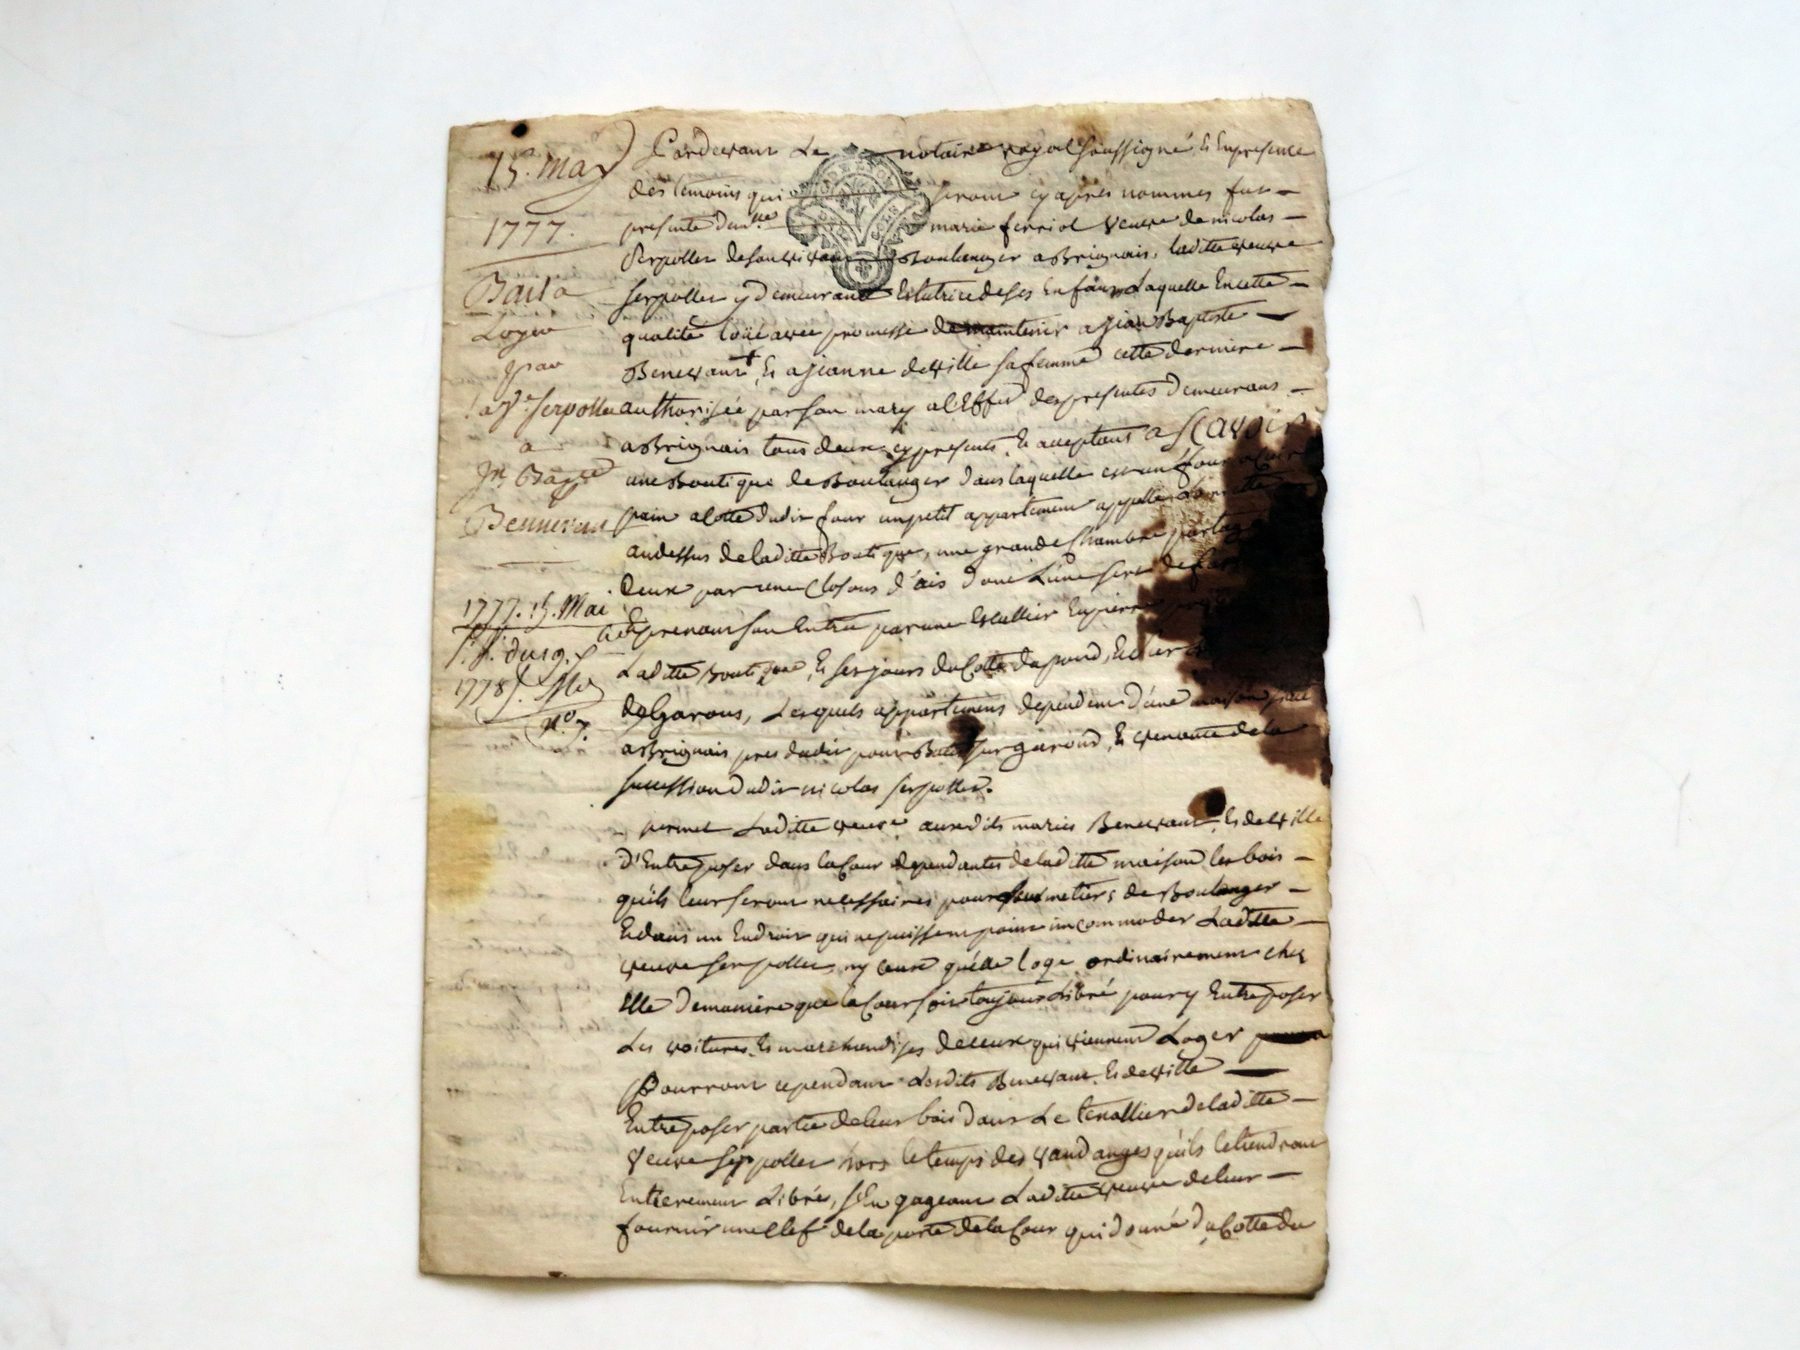 15. may
1777.
Bail a
Loyer
par
la Ve. Serpollet
a
Jn. Bapte.
Benevent
1777. 15. Mai
1778
No. 7.
Pardevant Le notaire royal soussigné, & En presence
des temoins qui seront cy apres nommes fut
presente marie ferriol veuve de nicolas
Serpollet de son vivant Boulanger a Brignais, laditte veuve
serpollet y demeurante & tutrice de ses Enfans, Laquelle En cette
qualité loüe avec promesse de maintenir a Jean Baptiste
Benevant, & a Jeanne deville sa femme cette derniere
authorisée par son mary a l'Effet des presentes demeurans
a Brignais tous deux cy presents, & acceptans a scavoir
une Boutique de Boulanger dans laquelle est un four a Cuire
pain a Cotté dudit four un petit appartement appellé
au dessus de laditte Boutique, une grande Chambre
deux par une Closons d'ais dont L'une sert de
& prenant son Entrée par une Escallier En pierre
Laditte Boutique, & ses jours du Cotté du pond, &
de Garons, Lesquels appartements dependent d'une maison
a Brignais pres dudit pont Bati sur garond, & venante de la
succession dudit nicolas serpollet.
permet Laditte veuve auxdits mariés Benevant, & deville
d'Entreposer dans la Cour dependantes de laditte maison les bois
qu'ils leur seront necessaires pour metiers de Boulanger
& dans un Endroit qui ne puissent point incommoder Laditte
veuve serpollet, ny ceux qu'elle loge ordinairement chez
Elle de maniere que la Cour soit toujours Libré pour y Entreposer
Les voitures, & marchandises de ceux qui viennent Loger
Pourront cependant Lesdits Benevant, & deville
Entreposer partie de leur bois dans Le tenallier de laditte
veuve serpollet hors le temps des vandanges qu'ils le tiendront
Entierement Libré, s'En gageant Laditte veuve de leur
fournir une Clef de la porte de la Cour qui donné du Cotté du